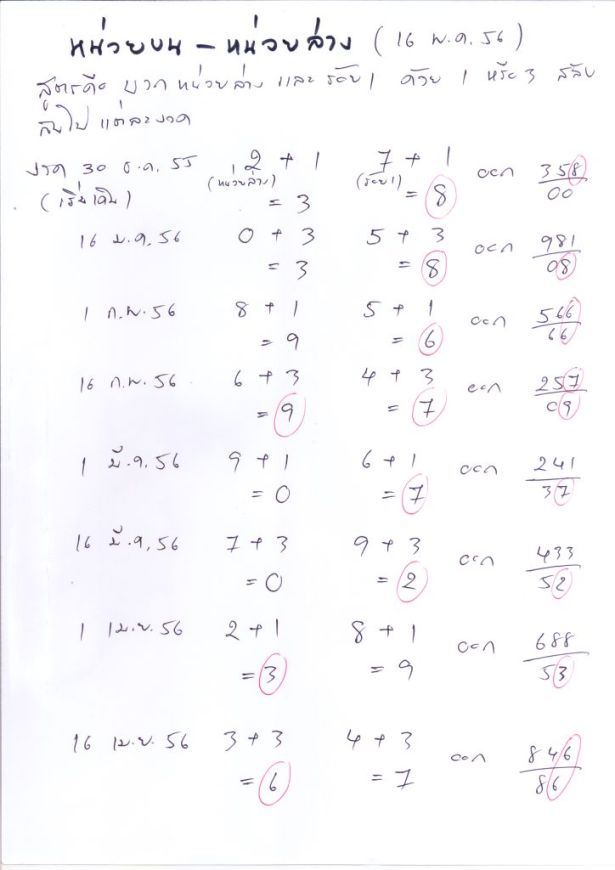 หน่วยบน – หน่วยล่าง (16 พ.ค. 56)
สูตรคือ บวก หน่วยล่าง และ ร้อย 1 ด้วย 1 หรือ 3 สลับ
กันไป แต่ละงวด
งวด 30 ธ.ค. 55 2 + 1 7 + 1 ออก 358
(เริ่มเดิน) (หน่วยล่าง) = 3 (ร้อย 1) = 8 00
16 ม.ค. 56 0 + 3 5 + 3 ออก 981
= 3 = 8 08
1 ก.พ. 56 8 + 1 5 + 1 ออก 566
= 9 = 6 66
16 ก.พ. 56 6 + 3 4 + 3 ออก 257
= 9 = 7 09
1 มี.ค. 56 9 + 1 6 + 1 ออก 241
= 0 = 7 37
16 มี.ค. 56 7 + 3 9 + 3 ออก 433
= 0 = 2 52
1 เม.ย. 56 2 + 1 8 + 1 ออก 688
= 3 = 9 53
16 เม.ย. 56 3 + 3 4 + 3 ออก 846
= 6 = 7 86